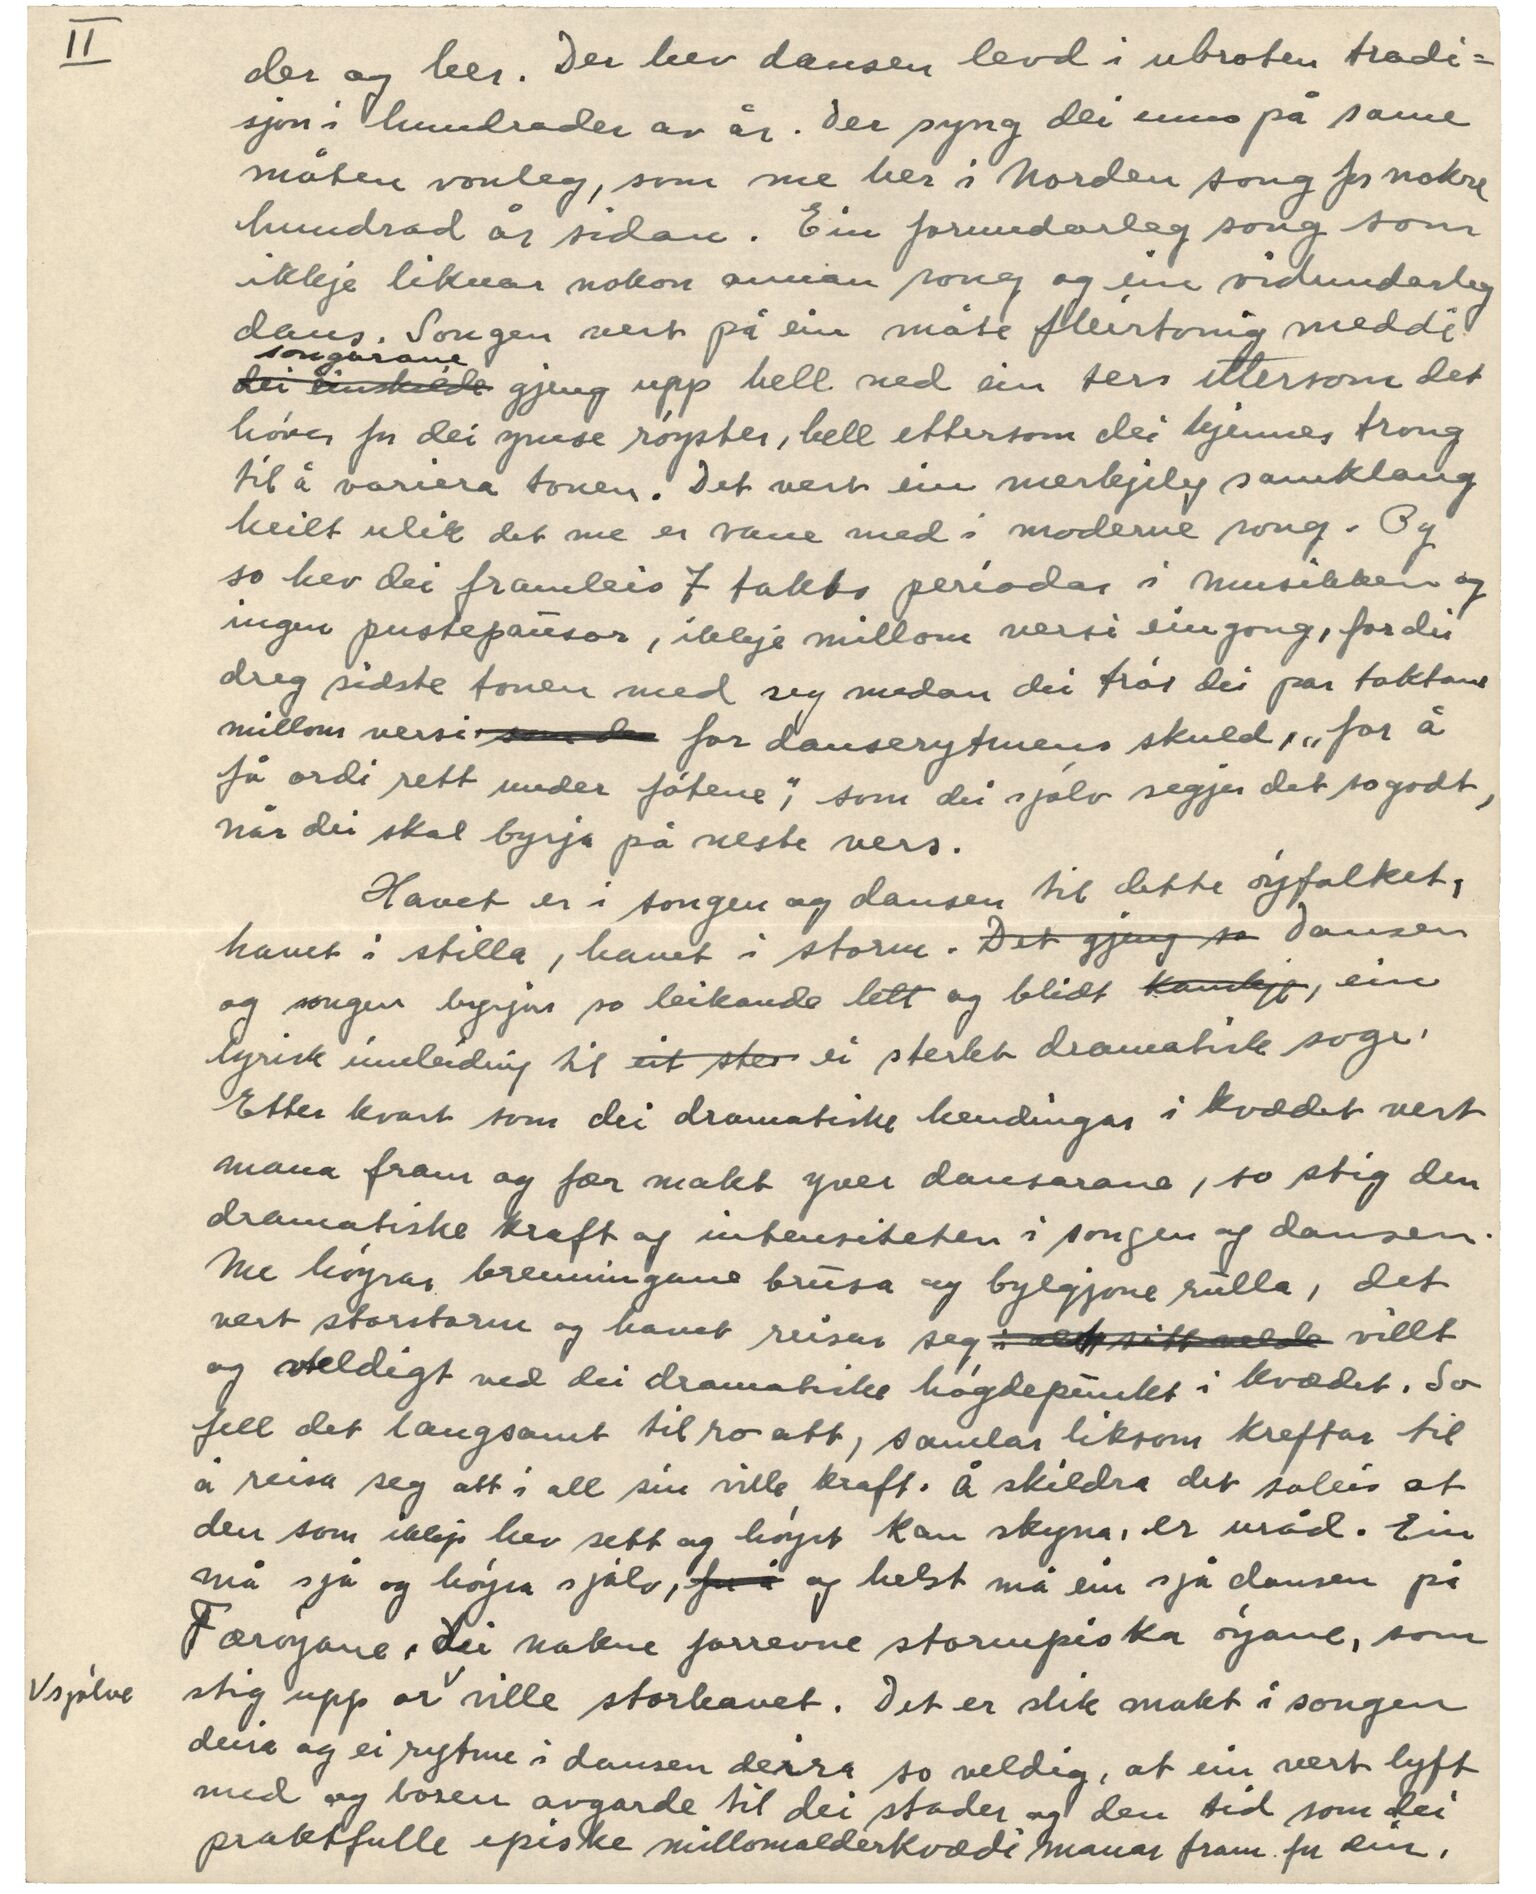 II
der og her. Der hev dansen levd i ubroten tradi=
sjon i hundrader av år. Der syng dei enno på same
måten vonleg, som me her i Norden song for nokre
hundrad år sidan. Ein forunderleg song som
ikkje liknar nokon annan song og ein vidunderleg
dans. Songen vert på ein måte fleirtonig meddi
songarane
dei einskilde gjeng upp hell ned ein ters ettersom det
høver for dei ymse røyster, hell ettersom dei kjennes trong
til å variera tonen. Det vert ein merkjeleg samklang
heilt ulik det me er vane med i moderne song. Og
so hev dei framleis 7 takts periodar i musikken og
ingen pustepausar, ikkje millom versi eingong, for dei
dreg sidste tonen med seg medan dei trør dei par taktane
millom versi som dei for danserytmens skuld, „for å
få ordi rett under føtene", som dei sjølv segjer det so godt,
når dei skal byrja på neste vers.
Havet er i songen og dansen til dette øyfolket,
havet i stilla, havet i storm. Det gjeng so Dansen
og songen byrjar so leikande lett og blidt kanskje, ein
lyrisk innleiding til eit ster ei sterkt dramatisk soge.
Etter kvart som dei dramatiske hendingar i kvædet vert
mana fram og fær makt yver dansarane, so stig den
dramatiske kraft og intensiteten i songen og dansen.
Me høyrar brenningane brusa og bylgjone rulla, det
vert storstorm og havet reisar seg i alt sitt velde villt
og veldigt ved dei dramatiske høgdepunkt i kvædet. So
fell det langsamt til ro att, samlar liksom krefter til
å reisa seg att i all sin ville kraft. Å skildra det soleis at
den som ikkje hev sett og høyrt kan skyna, er uråd. Ein
må sjå og høyra sjølv, for å og helst må ein sjå dansen på
Færøyane, dei nakne forrevne stormpiska øyane, som
V sjølve
stig upp or V ville storhavet. Det er slik makt i songen
deira og ei rytme i dansen deira so veldig, at ein vert lyft
med og boren avgarde til dei stader og den tid som dei
praktfulle episke millomalderkvædi manar fram for ein.